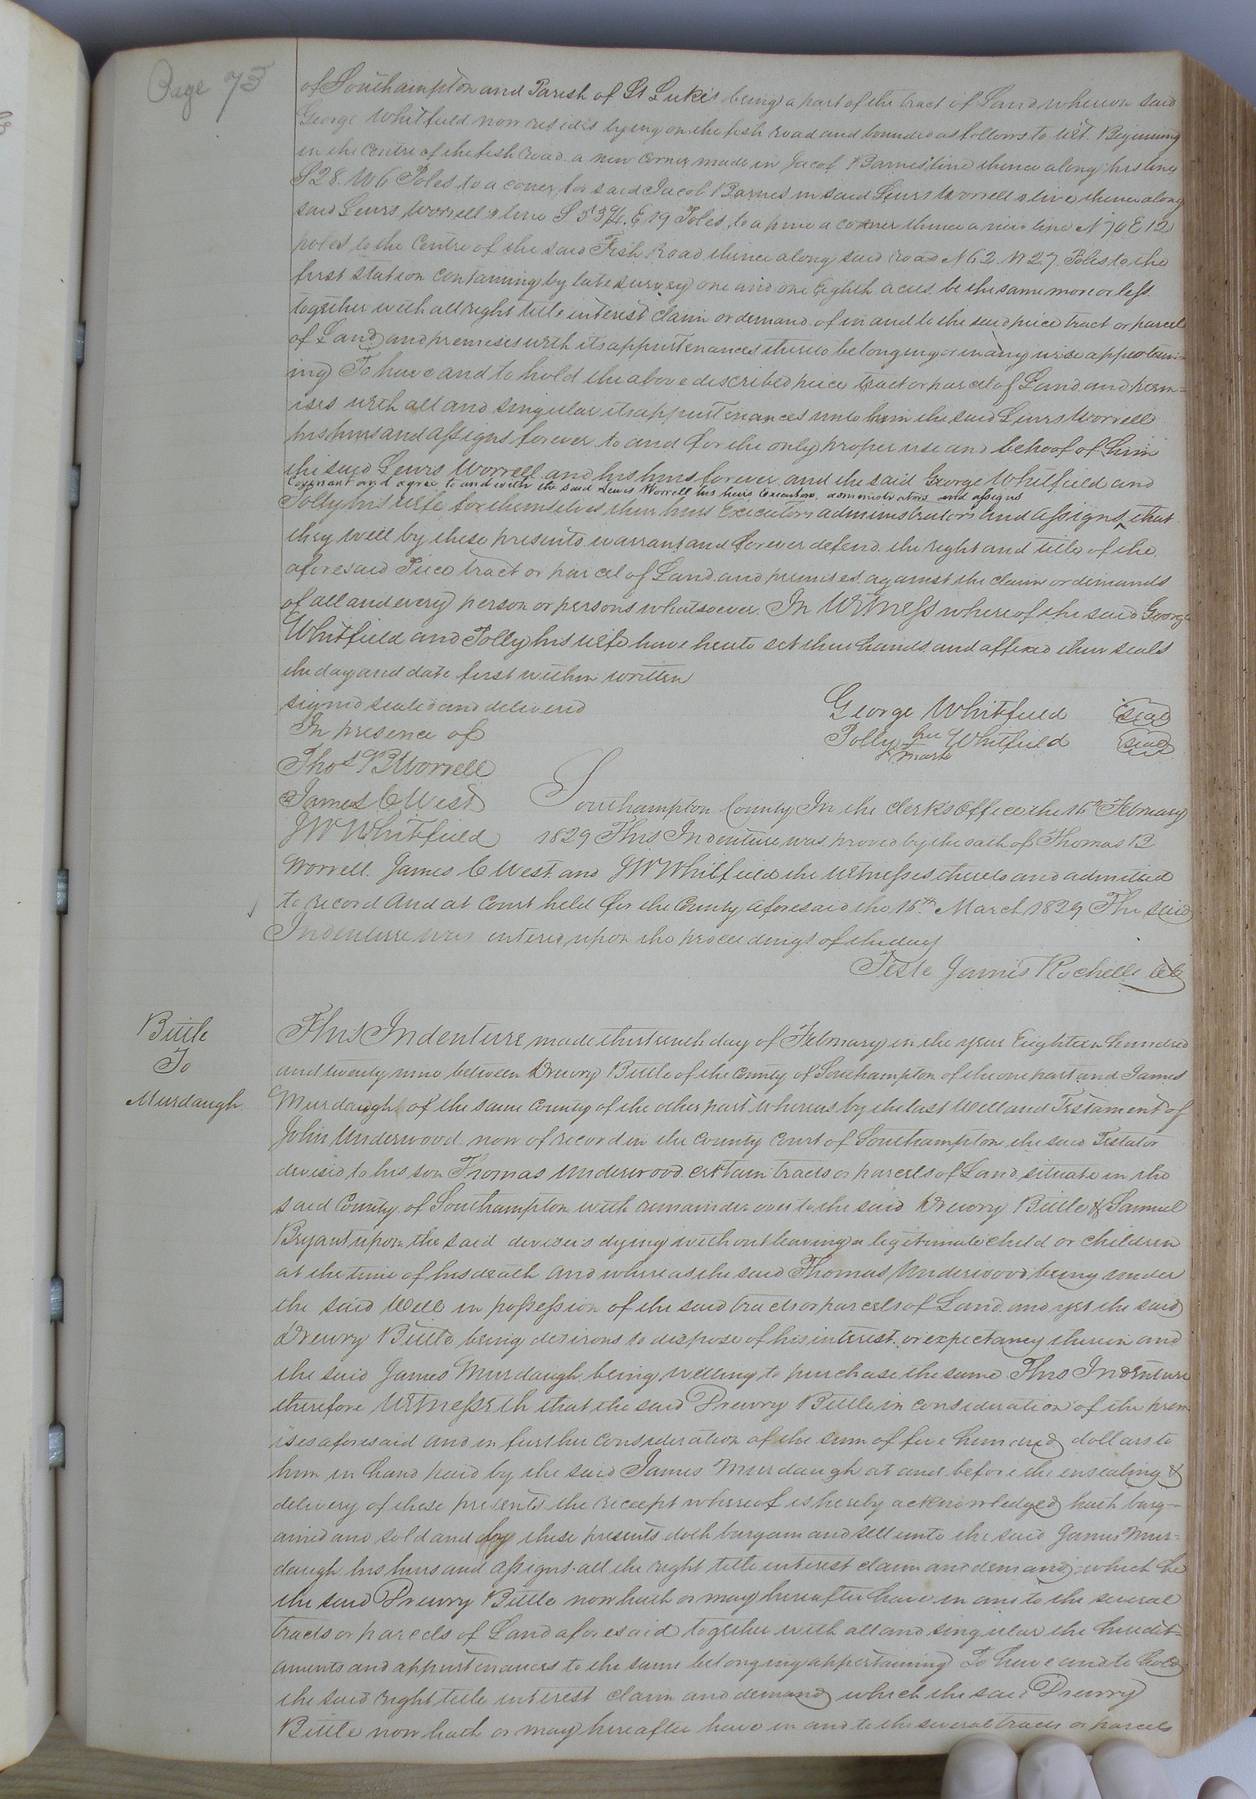 Page 73
of Southampton and Parish of St Lukes being a part of the tract of Land whereon said
George Whitfield now resides lying on the fish road and bounded as follows to wit. Beginning
in the centre of the fish road a new corner made in Jacob Barnes line thence along his line
S 28. W 6 Poles to a corner for said Jacob Barnes in said Lewis Worrell's line thence along
said Lewis Worrell's line S 53¾ E 19 Poles to a pine a corner thence a new line N 70 E 12
poles to the Centre of the said Fish Road thence along said road N 62 W 27 Poles to the
first station containing by late survey one and one Eighth acres be the same more or less
together with all right title interest claim or demand of in and to the said piece tract or parcel
of Land and premises with its appurtenances thereto belonging or in any wise appertain-
ing To have and to hold the above described piece tract or parcel of Land and prem=
ises with all and singular its appurtenances unto him the said Lewis Worrell
his heirs and assigns forever to and for the only proper use and behoof of him
the said Lewis Worrell and his heirs forever and the said George Whitfield and
Covenant and agree to and with the said Lewis Worrell his heirs Executors administrators and assigns
Polly his wife for themselves their heirs Executors administrators and assigns that
they will by these presents warrant and forever defend the right and title of the
aforesaid Piece tract or parcel of Land and premises against the claim or demands
of all and every person or persons whatsoever. In Witness whereof the said George
Whitfield and Polly his wife have hereto set their hands and affixed their seals
the day and date first within written
signed sealed and delivered
In presence of
Thos B Worrell
James C West
J W Whitfield
George Whitfield seal
Polly her mark Whitfield seal
Southampton County In the Clerks Office the 16th February
1829 This Indenture was proved by the oath of Thomas B
Worrell. James C West and J W Whitfield the witnesses thereto and admitted
to record And at Court held for the County aforesaid the 16th March 1829 The said
Indenture was entered upon the proceedings of the day
Teste James Rochelle CC
Bittle
To
Murdaugh
This Indenture made thirteenth day of February in the year Eighteen hundred
and twenty nine between Drewry Bittle of the County of Southampton of the one part and James
Murdaugh of the same County of the other part whereas by the last Will and Testament of
John Underwood now of record in the County Court of Southampton the said Testator
devised to his son Thomas Underwood certain tracts or parcels of Land situate in the
said County of Southampton with remainder over to the said Drewry Bittle & Samuel
Bryant upon the said devisee's dying without leaving a legitimate child or children
at the time of his death And whereas the said Thomas Underwood being under
the said Will in possession of the said tracts or parcels of Land and yet the said
Drewry Bittle being desirous to dispose of his interest or expectancy therein and
the said James Murdaugh being willing to purchase the same This Indenture
therefore Witnesseth that the said Drewry Bittle in consideration of the prem
ises aforesaid and in further consideration of the sum of five hundred dollars to
him in hand paid by the said James Murdaugh at and before the ensealing &
delivery of these presents the receipt whereof is hereby acknowledged hath barg-
ained and sold and by these presents doth bargain and sell unto the said James Mur=
daugh his heirs and assigns all the right title interest claim and demand which he
the said Drewry Bittle now hath or may hereafter have in and to the several
tracts or parcels of Land aforesaid together with all and singular the heredit-
aments and appurtenances to the same belonging appertaining To have and to hold
the said right title interest claim and demand which the said Drewry
Bittle now hath or may hereafter have in and to the several tracts or parcels